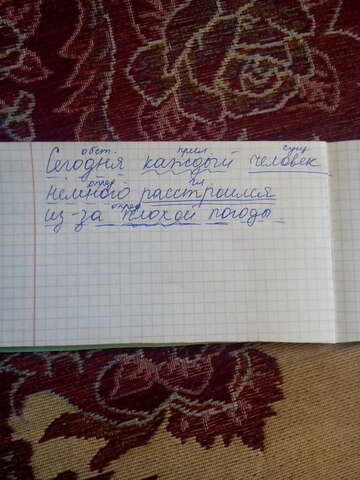 обст. прил. сущ.
Сегодня каждый человек
опред. гл.
немного расстроился
опред.
из-за плохой погоды.